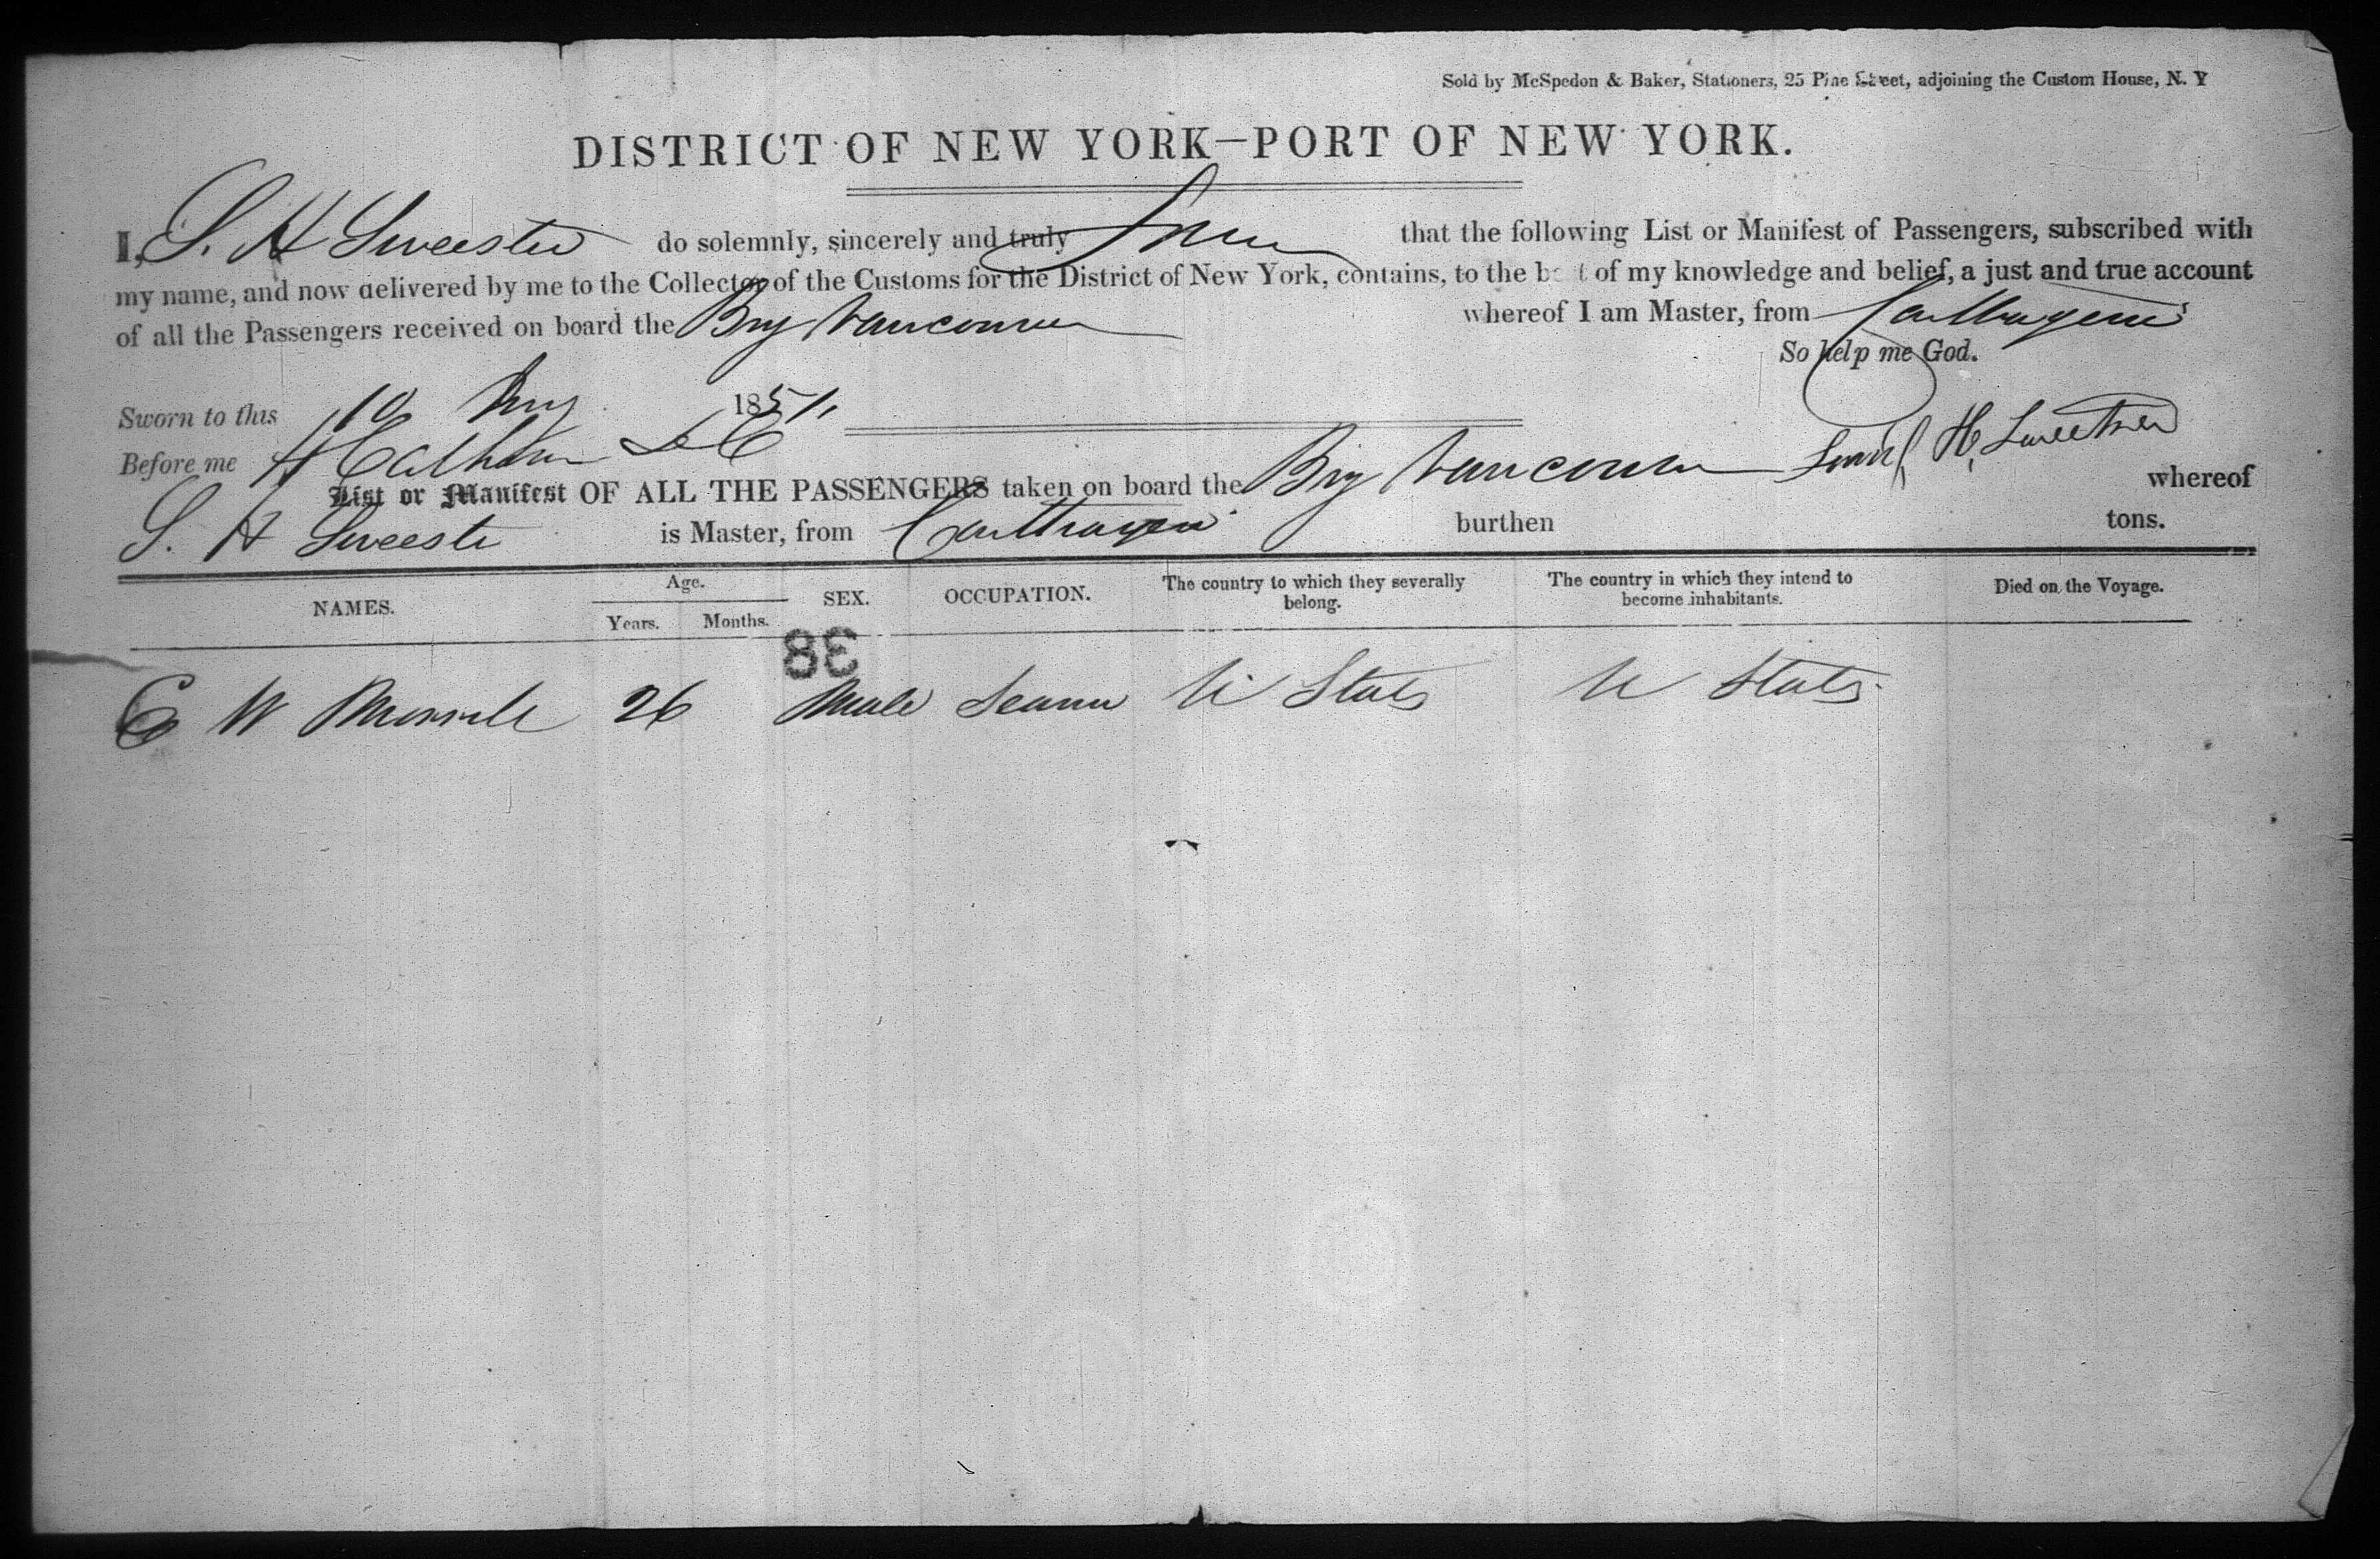 Sold by McSpedon & Baker, Stationers, 25 Pine Street, adjoining the Custom House, N. Y
DISTRICT OF NEW YORK—PORT OF NEW YORK.
I, S. H Sweetser do solemnly, sincerely and truly Swear that the following List or Manifest of Passengers, subscribed with
my name, and now delivered by me to the Collector of the Customs for the District of New York, contains, to the best of my knowledge and belief, a just and true account
of all the Passengers received on board the Brig Vancouver whereof I am Master, from Carthagena
So help me God.
Sworn to this 10 1851.
Before me Calhoun DC
H. Sweetser
List or Manifest OF ALL THE PASSENGERS taken on board the Brig Vancouver whereof
S. H Sweetser is Master, from Carthagena burthen tons.
NAMES. Age. Years. Months. SEX. OCCUPATION. The country to which they severally belong. The country in which they intend to become inhabitants. Died on the Voyage.
38
E W 26 Male Seaman U States U States